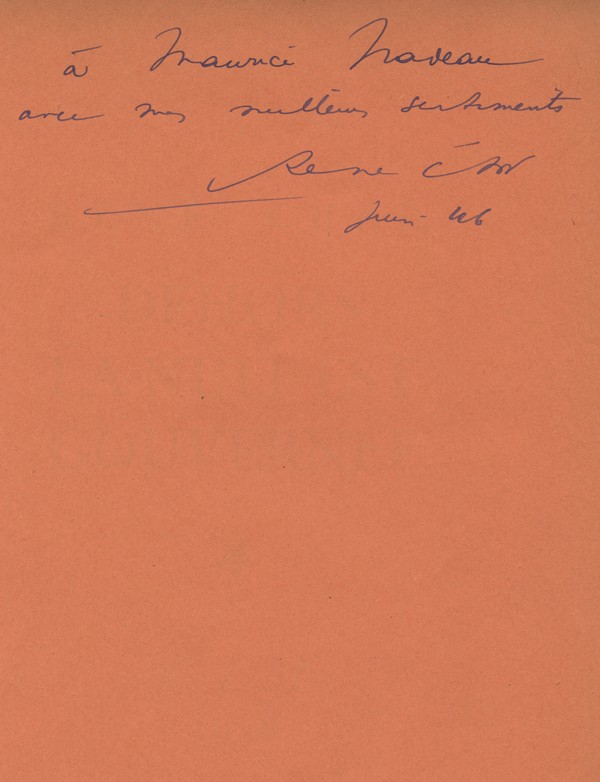 à Maurice Nadeau
avec mes meilleurs sentiments
René Char
Juin 46